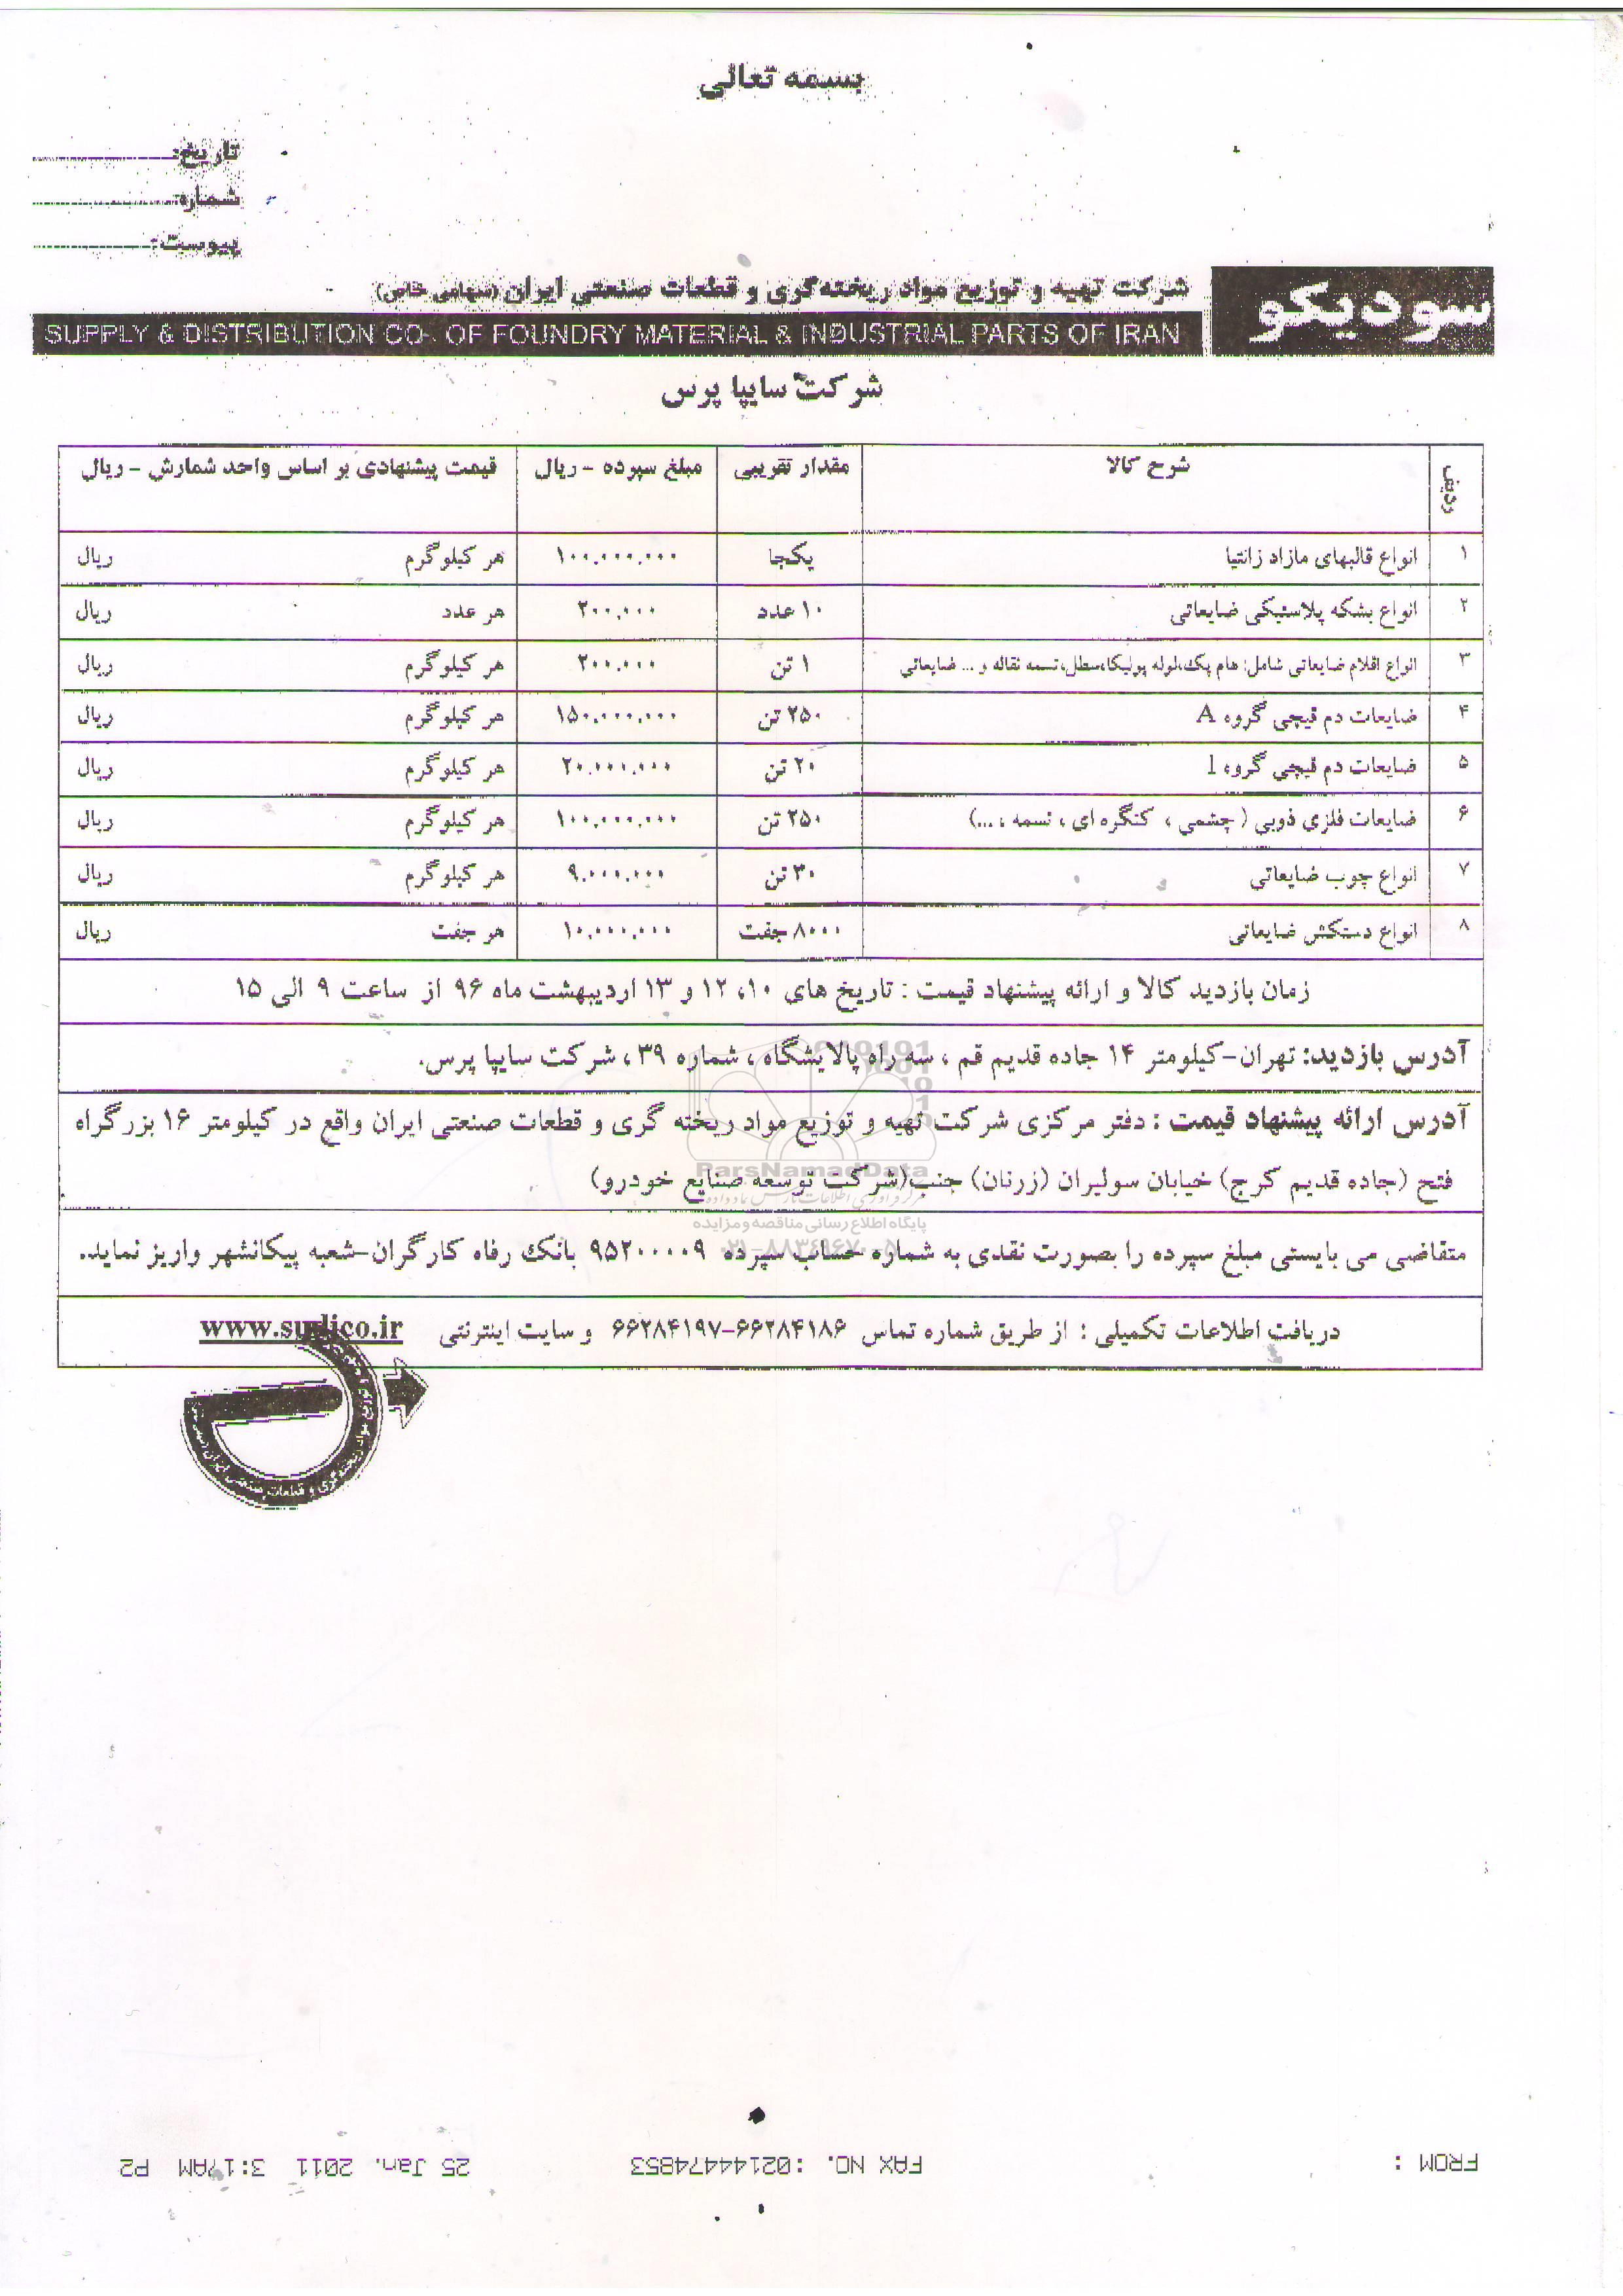 بسمه تعالی
تاریخ:
شماره:
پیوست:
سودیکو
شرکت تهیه و توزیع مواد ریخته‌گری و قطعات صنعتی ایران (سهامی خاص)
SUPPLY & DISTRIBUTION CO. OF FOUNDRY MATERIAL & INDUSTRIAL PARTS OF IRAN
شرکت سایپا پرس
ردیف شرح کالا مقدار تقریبی مبلغ سپرده - ریال قیمت پیشنهادی بر اساس واحد شمارش - ریال
۱ انواع قالبهای مازاد زانتیا یکجا ۱۰۰.۰۰۰.۰۰۰ هر کیلوگرم ریال
۲ انواع بشکه پلاستیکی ضایعاتی ۱۰ عدد ۲۰۰.۰۰۰ هر عدد ریال
۳ انواع اقلام ضایعاتی شامل: هام پک،لوله پولیکا،سطل،تسمه نقاله و ... ضایعاتی ۱ تن ۲۰۰.۰۰۰ هر کیلوگرم ریال
۴ ضایعات دم قیچی گروه A ۲۵۰ تن ۱۵۰.۰۰۰.۰۰۰ هر کیلوگرم ریال
۵ ضایعات دم قیچی گروه ۲۰ تن ۲۰.۰۰۰.۰۰۰ هر کیلوگرم ریال
۶ ضایعات فلزی ذوبی ( چشمی ، کنگره ای ، تسمه ، ...) ۲۵۰ تن ۱۰۰.۰۰۰.۰۰۰ هر کیلوگرم ریال
۷ انواع چوب ضایعاتی ۳۰ تن ۹.۰۰۰.۰۰۰ هر کیلوگرم ریال
۸ انواع دستکش ضایعاتی ۸۰۰۰ جفت ۱۰.۰۰۰.۰۰۰ هر جفت ریال
زمان بازدید کالا و ارائه پیشنهاد قیمت : تاریخ های ۱۰، ۱۲ و ۱۳ اردیبهشت ماه ۹۶ از ساعت ۹ الی ۱۵
آدرس بازدید: تهران-کیلومتر ۱۴ جاده قدیم قم ، سه راه پالایشگاه ، شماره ۳۹ ، شرکت سایپا پرس.
آدرس ارائه پیشنهاد قیمت : دفتر مرکزی شرکت تهیه و توزیع مواد ریخته گری و قطعات صنعتی ایران واقع در کیلومتر ۱۶ بزرگراه
فتح (جاده قدیم کرج) خیابان سولیران (زرنان) جنب(شرکت توسعه صنایع خودرو)
ParsNamadData
پایگاه اطلاع رسانی مناقصه و مزایده
۰۲۱-۸۸۳۴۹۶۷۰-۵
متقاضی می بایستی مبلغ سپرده را بصورت نقدی به شماره حساب سپرده ۹۵۲۰۰۰۰۹ بانک رفاه کارگران-شعبه پیکانشهر واریز نماید.
دریافت اطلاعات تکمیلی : از طریق شماره تماس ۶۶۲۸۴۱۸۶-۶۶۲۸۴۱۹۷ و سایت اینترنتی www.sudico.ir
FROM : FAX NO. :02144474853 25 Jan. 2011 3:17AM P2